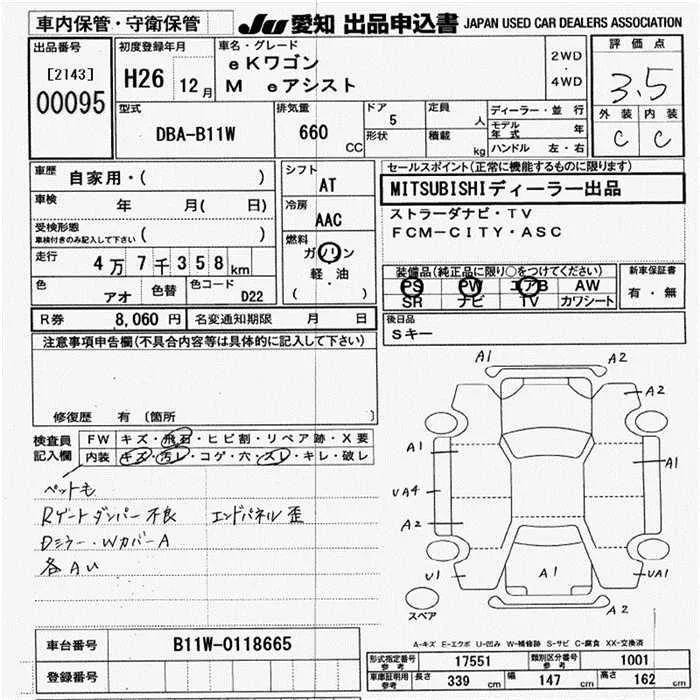 車内保管・守衛保管
JU 愛知 出品申込書 JAPAN USED CAR DEALERS ASSOCIATION
出品番号
[2143]
00095
初度登録年月
H26 12月
車名・グレード
eKワゴン
M eアシスト
2WD
・
4WD
評価点
3.5
外装 内装
C C
型式
DBA-B11W
排気量
660 CC
ドア
5
形状
定員
人
積載
kg
ディーラー・並行
モデル年式 年
ハンドル 左・右
車歴
自家用・( )
車検 年 月( 日)
受検形態
車検付きのみ記入して下さい ( )
走行 4万7千358km
色 アオ
色替
色コード D22
シフト
AT
冷房
AAC
燃料
ガソリン
軽・油
( )
セールスポイント(正常に機能するものに限ります)
MITSUBISHIディーラー出品
ストラーダナビ・TV
FCM-CITY・ASC
装備品(純正品に限り○をつけてください)
PS PW エアB AW
SR ナビ TV カワシート
新車保証書
有・無
R券 8,060円 名変通知期限 月 日
後日品
Sキー
注意事項申告欄(不具合内容等は具体的に記入して下さい)
修復歴 有 〔箇所 〕
検査員記入欄
FW キズ・飛石・ヒビ割・リペア跡・X要
内装 キズ・汚レ・コゲ・穴・スレ・キレ・破レ
ペットも
Rゲートダンパー不良 エンドパネル歪
Dミラー・WカバーA
各AU
A1
A2
A2
A1
A1
UA4
A2
U1
A1
UA1
A2
スペア
A-キズ E-エクボ U-凹み W-補修跡 S-サビ C-腐食 XX-交換済
車台番号 B11W-0118665
登録番号
形式指定番号 参考 17551 類別区分番号 参考 1001
車庫証明用 参考 長さ 339 cm 幅 147 cm 高さ 162 cm